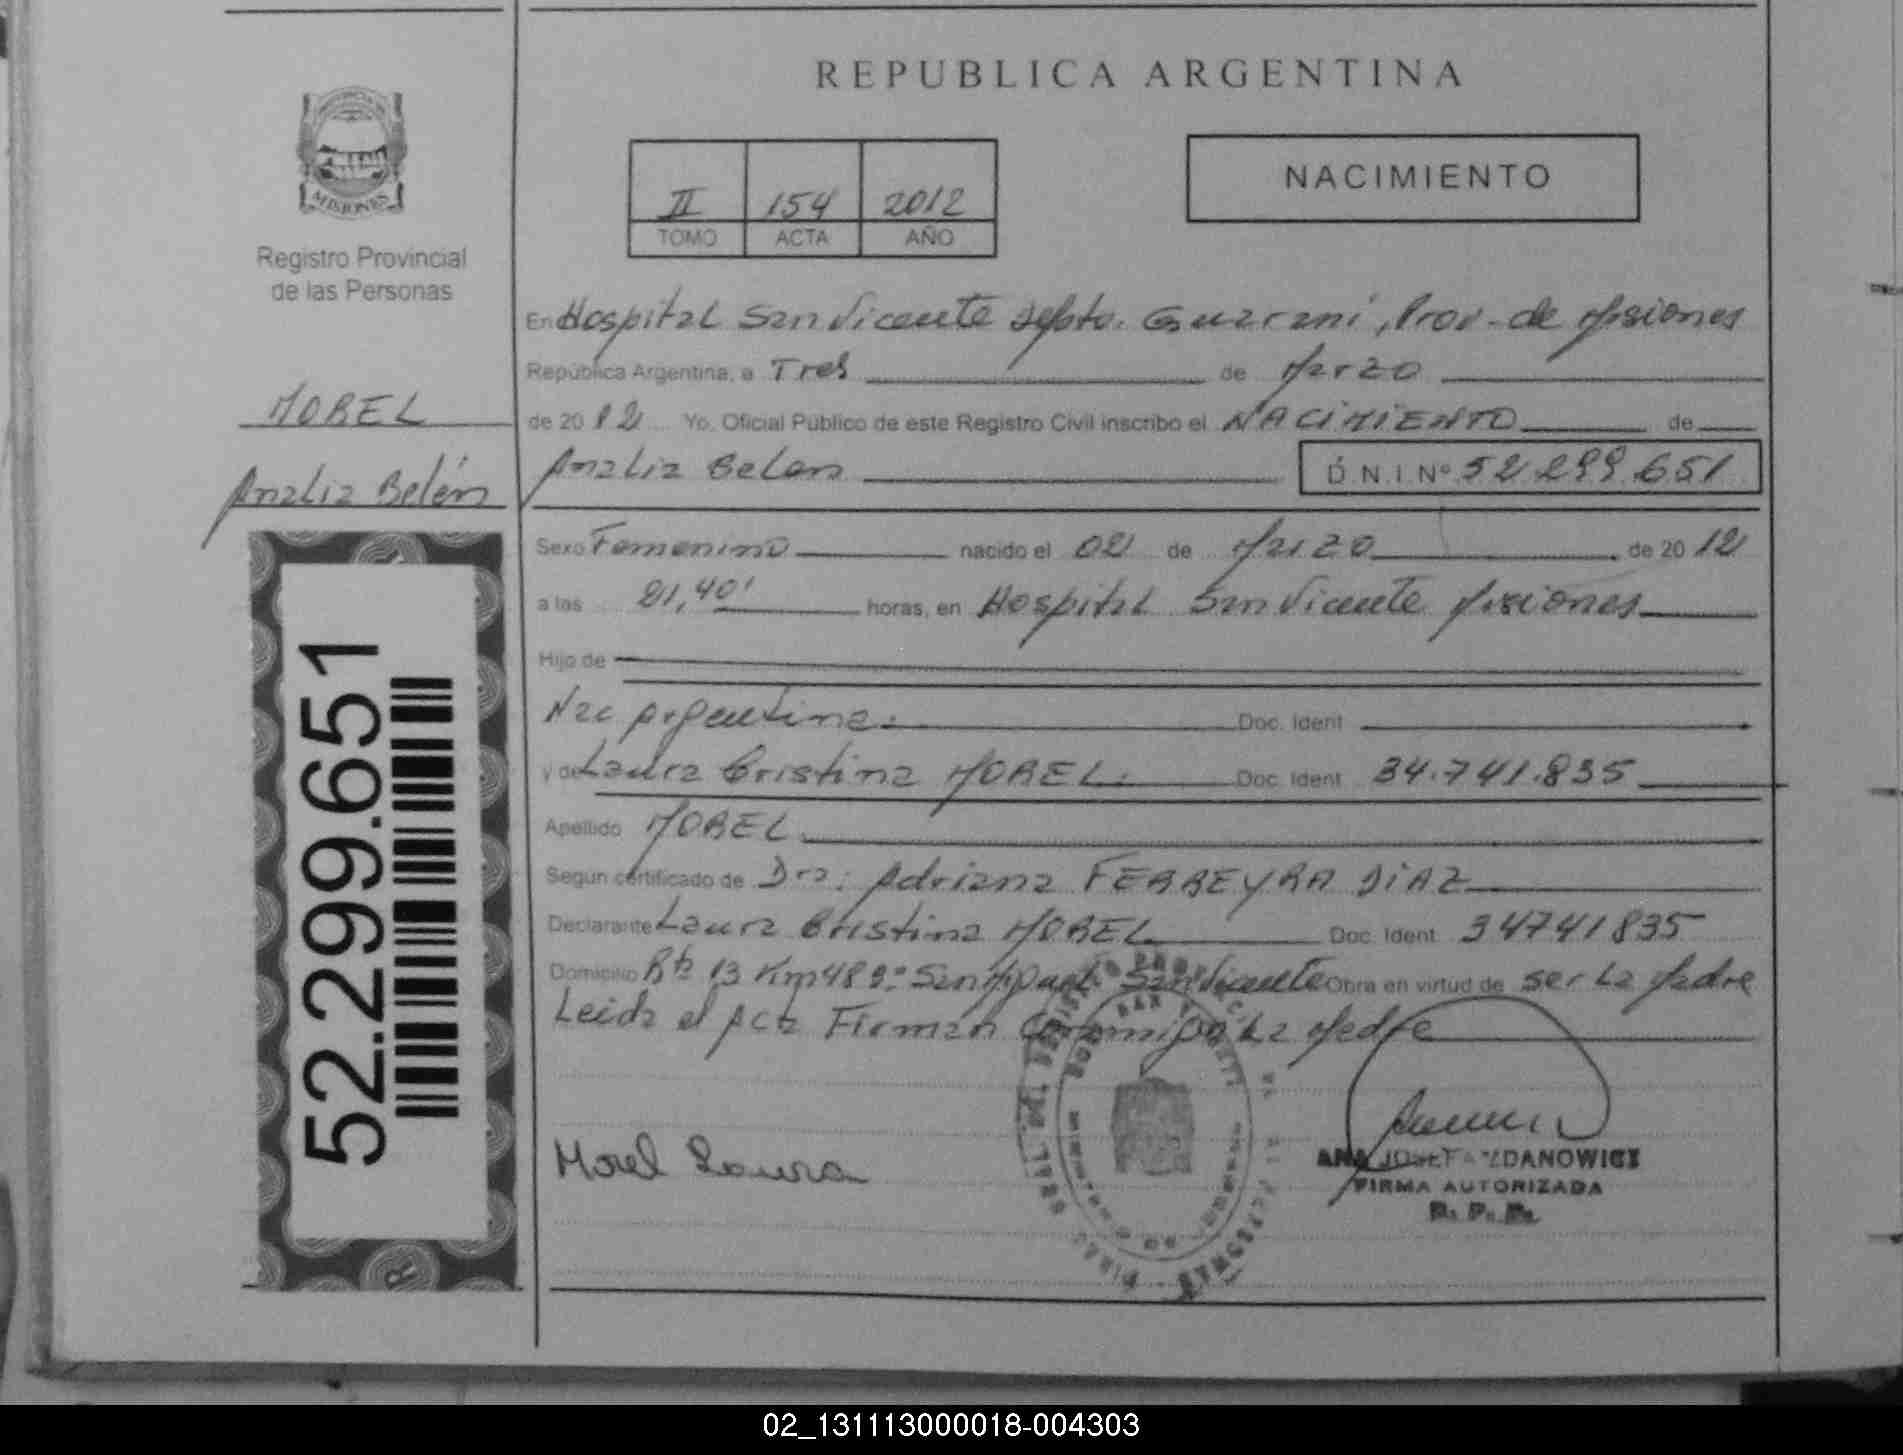 REPUBLICA ARGENTINA
PROVINCIA DE
MISIONES
Registro Provincial
de las Personas
II 154 2012
TOMO ACTA AÑO
NACIMIENTO
MOREL
Analia Belén
52.299.651
En Hospital San Vicente Depto. Guarani, Prov. de Misiones
República Argentina, a Tres de Marzo
de 2012 Yo, Oficial Público de este Registro Civil inscribo el NACIMIENTO de
Analia Belen D.N.I.Nº 52.299.651
Sexo Femenino nacido el 02 de Marzo de 2012
a las 21,40' horas, en Hospital San Vicente Misiones
Hijo de
Nac Argentina. Doc. Ident
y de Laura Cristina MOREL. Doc. Ident 34.741.835
Apellido MOREL
Segun certificado de Dra: Adriana FERREYRA DIAZ
Declarante Laura Cristina MOREL Doc. Ident 34741835
Domicilio Rta 13 Km 48 San Vicente Obra en virtud de ser La Madre
Leida el Acta Firman Conmigo La Madre
Morel Laura
ANA JOSEFA ZDANOWICZ
FIRMA AUTORIZADA
R. P. P.
02_131113000018-004303